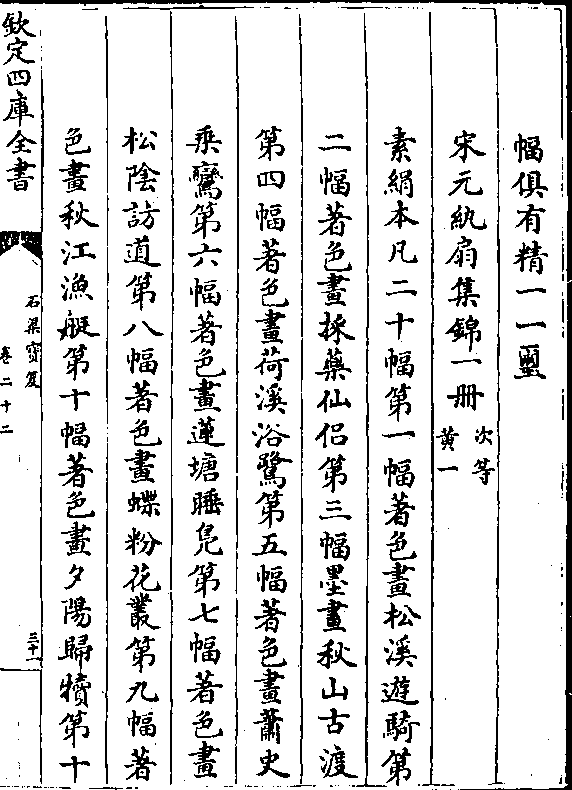 幅俱有精一一璽
宋元紈扇集錦一冊次等
黄一
素絹本凡二十幅第一幅著色畫松溪遊騎第
二幅著色畫採藥仙侣第三幅墨畫秋山古渡
第四幅著色畫荷溪浴鷺第五幅著色畫蕭史
乗鸞第六幅著色畫蓮塘睡鳬第七幅著色畫
松陰訪道第八幅著色畫蝶粉花叢第九幅著
色畫秋江漁艇第十幅著色畫夕陽歸犢第十
欽定四庫全書
石渠寳笈
卷二十二
三十一